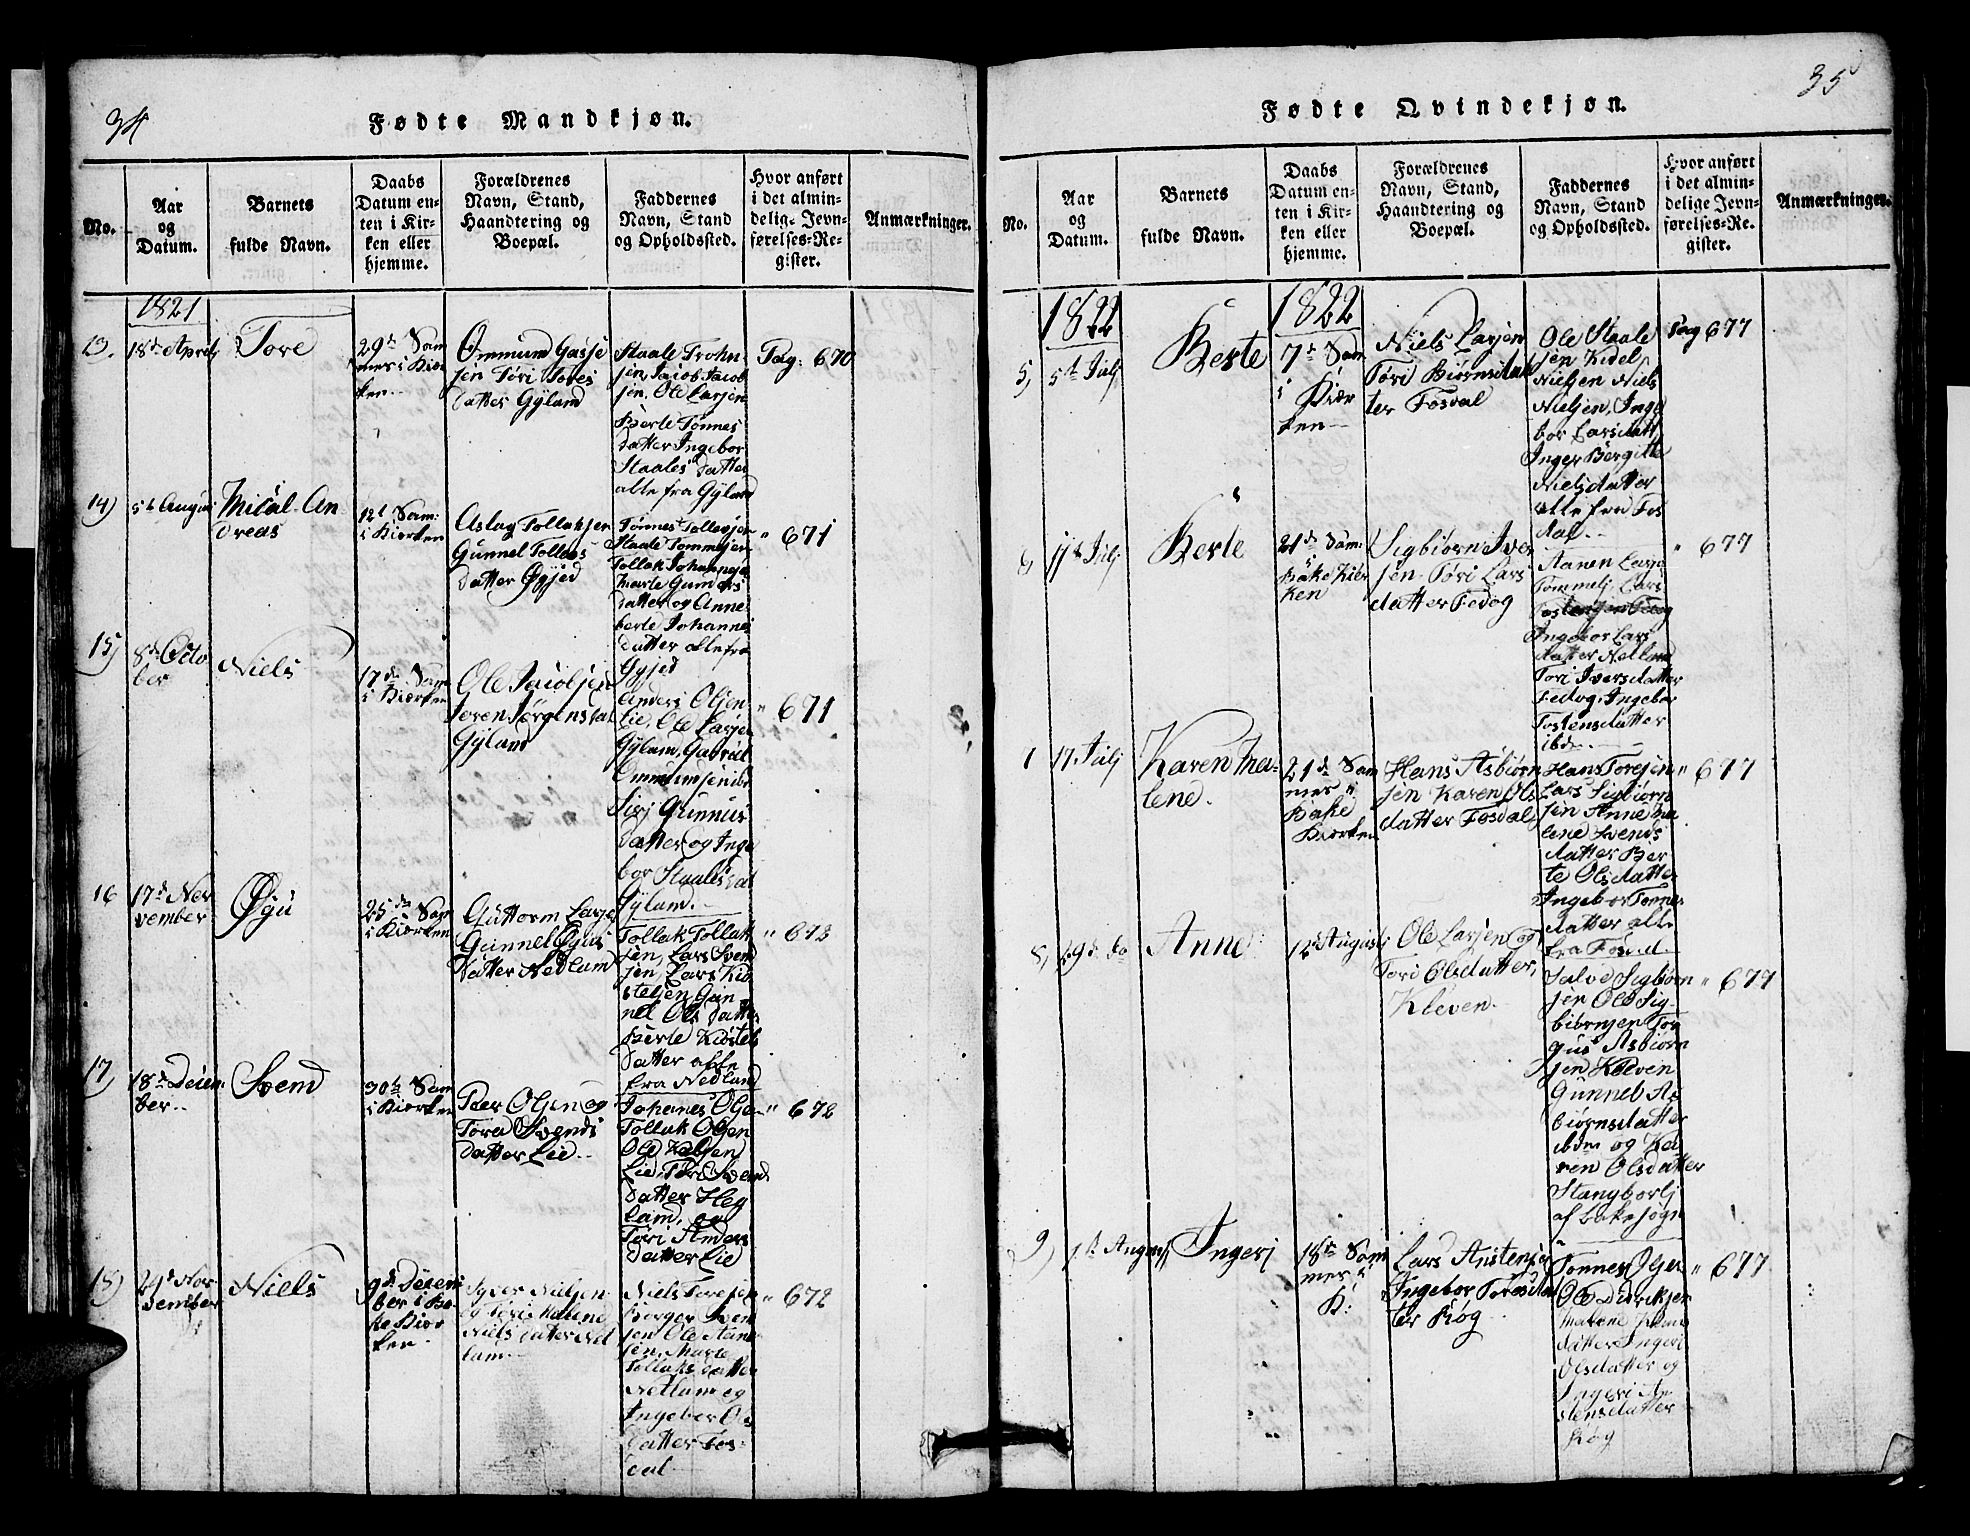 34
Fødte Mandkjøn.
No.
Aar
og
Datum.
Barnets
fulde Navn.
Daabs
Datum en-
ten i Kir-
ken eller
hjemme.
Forældrenes
Navn, Stand,
Haandtering og
Boepæl.
Faddernes
Navn, Stand
og Opholdssted.
Hvor anført
i det almin-
delig. Jevn-
førelses-Re-
gister.
Anmærkninger.
1821
13.
18de April
Tore
29de Sam
mes i Kiør
ken
Ommund Gasse
sen Tøri Tores
datter Gyland
Staale Trohn
sen, Jacob Jacob
sen, Ole Larsen
Berte Tønnes
datter Ingebor
Staales datter
alle fra Gyland
Pag: 670
14)
5te August
Mical An
dreas
12te Sam:
i Kiørken
Aslag Tollaksen
Gunnel Tollas
datter Øysed
Tønnes Tollagsen
Staale Tommesen
Tollak Johannesen
Marte Gunders
datter og Anne
berte Johannes
datter alle fra
Øysed
" 671
15)
8de Octo
ber
Niels
17de Sam
i Kiørken
Ole Jacobsen
Seren Jørgensdat
Gyland
Anders Olsen
Lie, Ole Larsen
Gyland, Gabriel
Ommundsen ibd
Siri Gunnus
datter og Inge
bor Staalesdat
Gyland.
" 671
16
17de No
vember
Øgu
25de Sam
i Kiørken
Guttorm Larsen
Gunnel Øgus
datter Nedland
Tollak Tollak
sen, Lars Svend
sen, Lars Kid
stelsen Gun
nel Ols datter
Berte Kidstels
datter alle
fra Nedland
" 673
17)
18de Decem
ber
Svend
30te Sam
i Kiørken
Peer Olsen og
Tora Svends
datter Lie
Johanes Olsen
Tollak Olsen
Ole
Lie, Tøri Svends
datter Heg
land, og
Tøri Anders
datter Lie
" 672
18)
24de No
vember
Niels
9de Decem
ber i Ba
ke Kiør
ken
Syver Nielsen
og Tøri Malene
Niels datter Net
land
Niels Toresen
Børger Sven
sen Ole Aane
sen, Marte
Tollaks datter
Netland og
Ingebor Ols
datter Fos-
dal
" 672
35
Fødte Qvindekjøn.
No.
Aar
og
Datum.
Barnets
fulde Navn.
Daabs
Datum en-
ten i Kir-
ken eller
hjemme.
Forældrenes
Navn, Stand,
Haandtering og
Boepæl.
Faddernes
Navn, Stand
og Opholdssted.
Hvor anført
i det almin-
delige Jevn-
førelses-Re-
gister.
Anmærkninger.
1822
1822
5,
5te Julj
Berte
7de Sam
i Kiør
ken
Niels Larsen
Tøri Biørnsdat
ter Fosdal
Ole Staale
sen Kidel
Nielsen Niels
Nielsen, Inge
bor Larsdatt
Inger Bergitte
Nielsdatter
alle fra Fos
dal
Pag 677
6,
11te Julj
Berte
21de Sam:
i
Bake Kiør
ken
Sigbiørn Iver
sen Tøri Lars
datter Fedog
Aanen Larse
Tommelj Lars
Ingebor Lars
datter Netland
Tori Iversdatter
Fedog, Ingebor
Tostensdatter
ibd
" 677
17 Julj
Karen Ma-
lene.
21de Sam
mes i
Bake
Kiørken
Hans Asbiørn
sen Karen Ols
datter Fosdal
Hans Toresen
Lars Sigbiørn
sen Anne Ma
lene Svends
datter Ber
te Olsdatter
Ingebor Tønnes
datter alle
fra Fosdal
" 677
8,
29de do
Anne
12te August
Ole Larsen og
Tori Olsdatter,
Kleven
Salve Sigbiørn
sen Ole Sig-
biørnsen Tor
gus Asbiørn
sen Kleven
Gunnel As
biørnsdatter
ibdm og Ka
ren Olsdatter
Stangborlj
af Bakesogn
" 677
9)
1te August
Ingerj
18de Sam
mes i
K:
Lars Anstensen
Ingebor Toresdat
ter Røg
Tønnes Olsen
Ole Didriksen
Malene
datter Ingeri
Olsdatter og
Ingeri An
stensdatter
Røg
" 677